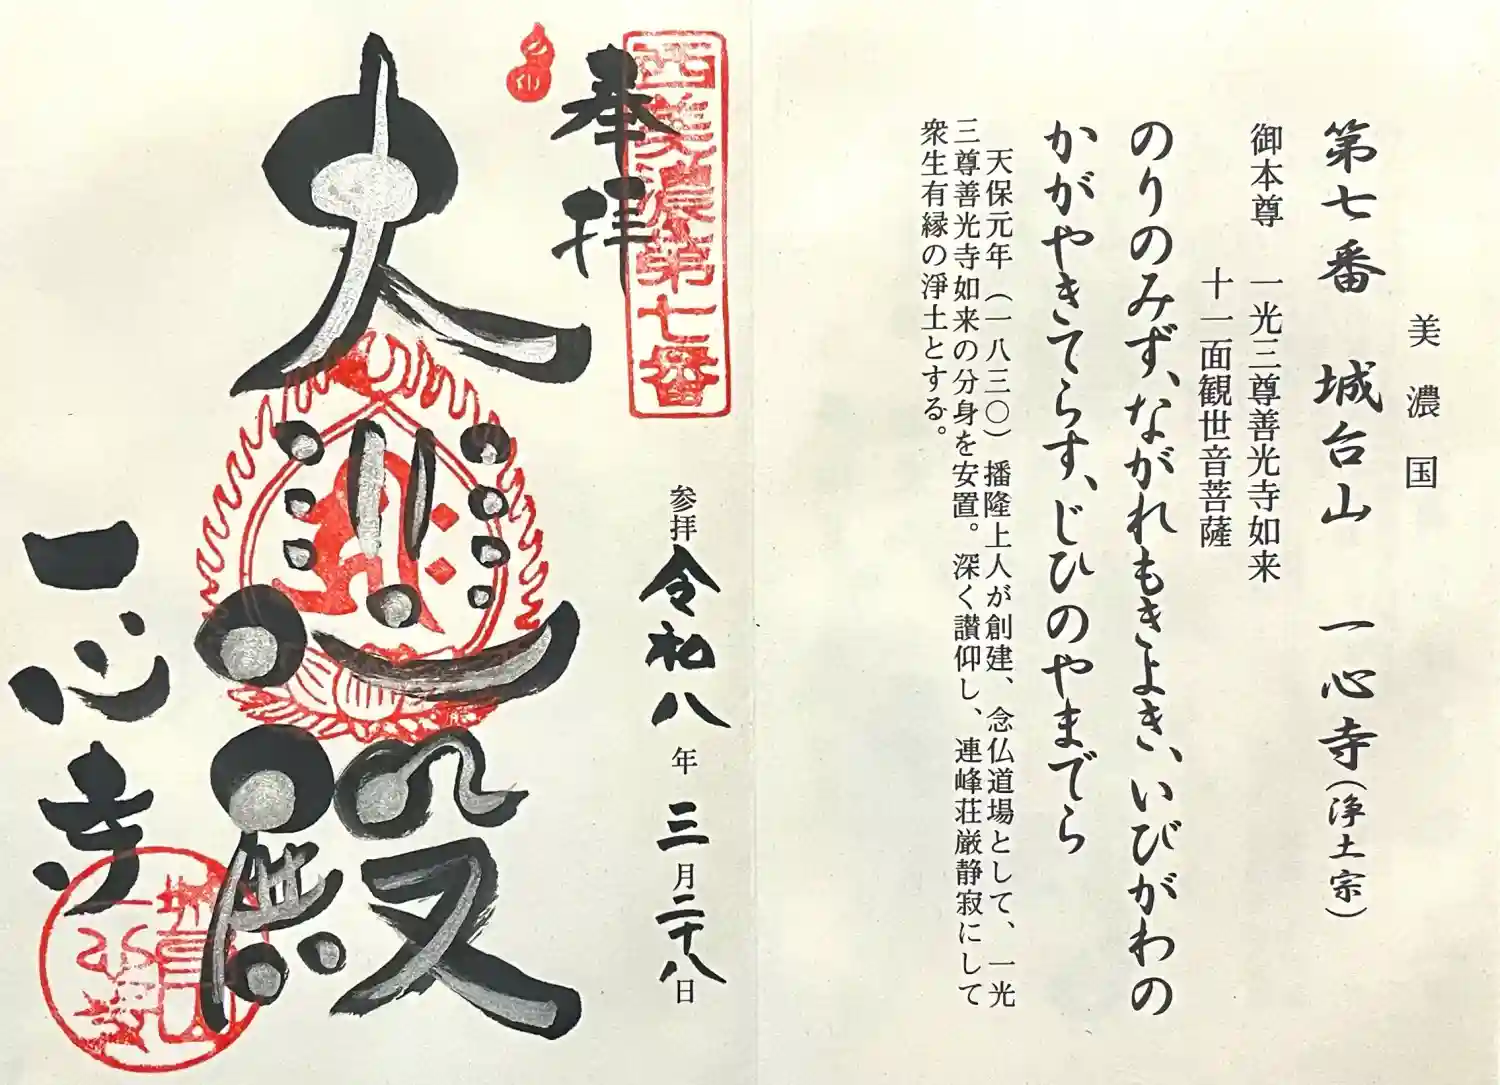 美濃国
第七番 城台山 一心寺（浄土宗）
御本尊 一光三尊善光寺如来
十一面観世音菩薩
のりのみず、ながれもきよき、いびがわの
かがやきてらす、じひのやまでら
天保元年（一八三〇）播隆上人が創建、念仏道場として、一光
三尊善光寺如来の分身を安置。深く讃仰し、連峰荘厳静寂にして
衆生有縁の浄土とする。
西美濃第七番
奉拝
参拝 令和八年三月二十八日
大悲殿
一心寺